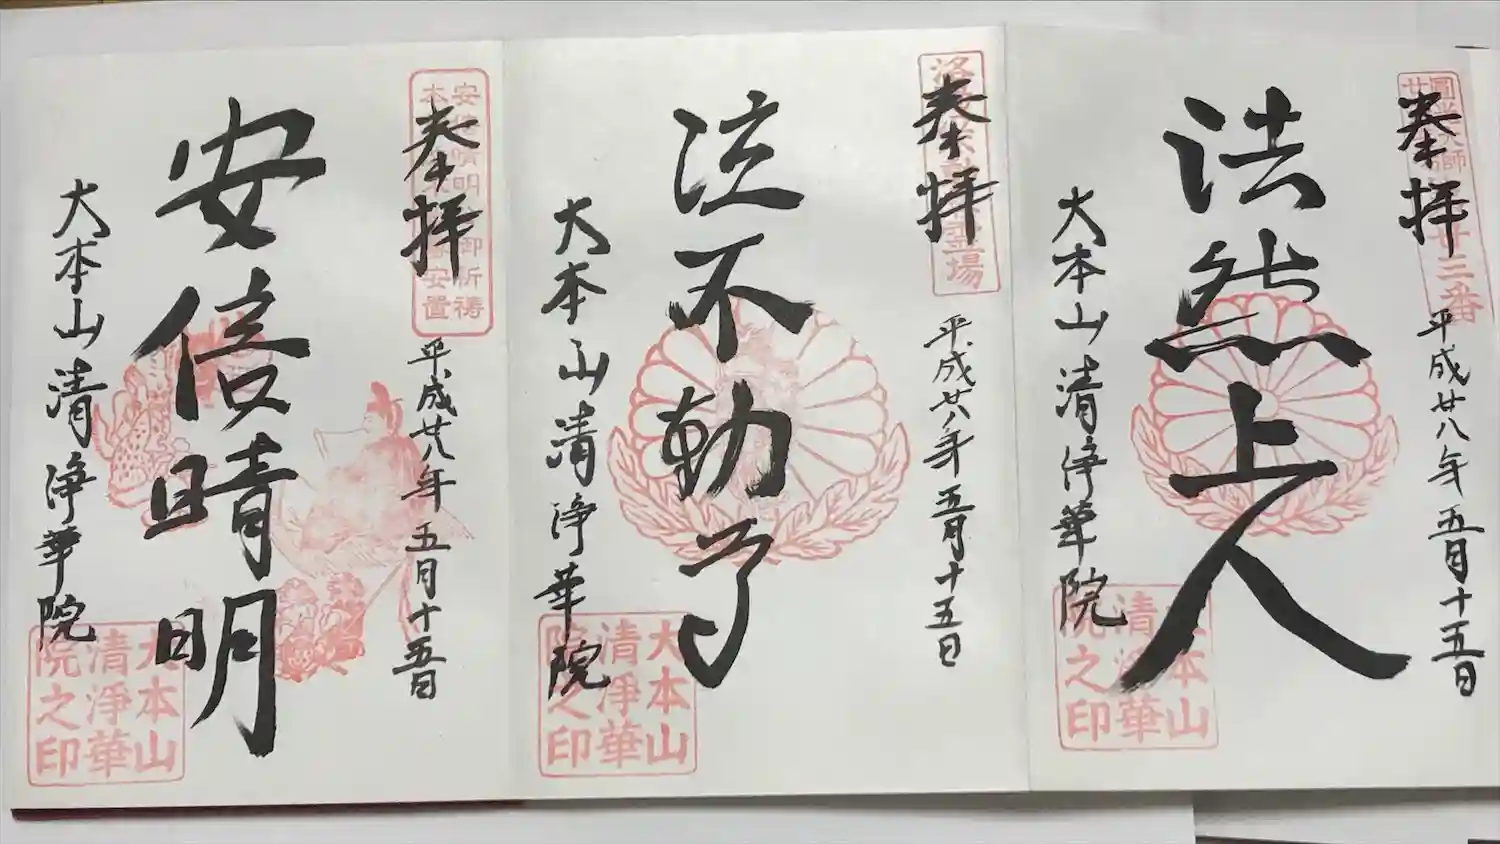 奉拝
平成廿八年五月十五日
法然上人
大本山清浄華院
大本山
清浄華
院之印
奉拝
平成廿八年五月十五日
泣不動尊
大本山清浄華院
大本山
清淨華
院之印
奉拝
平成廿八年五月十五日
安倍晴明
大本山清浄華院
大本山
清淨華
院之印